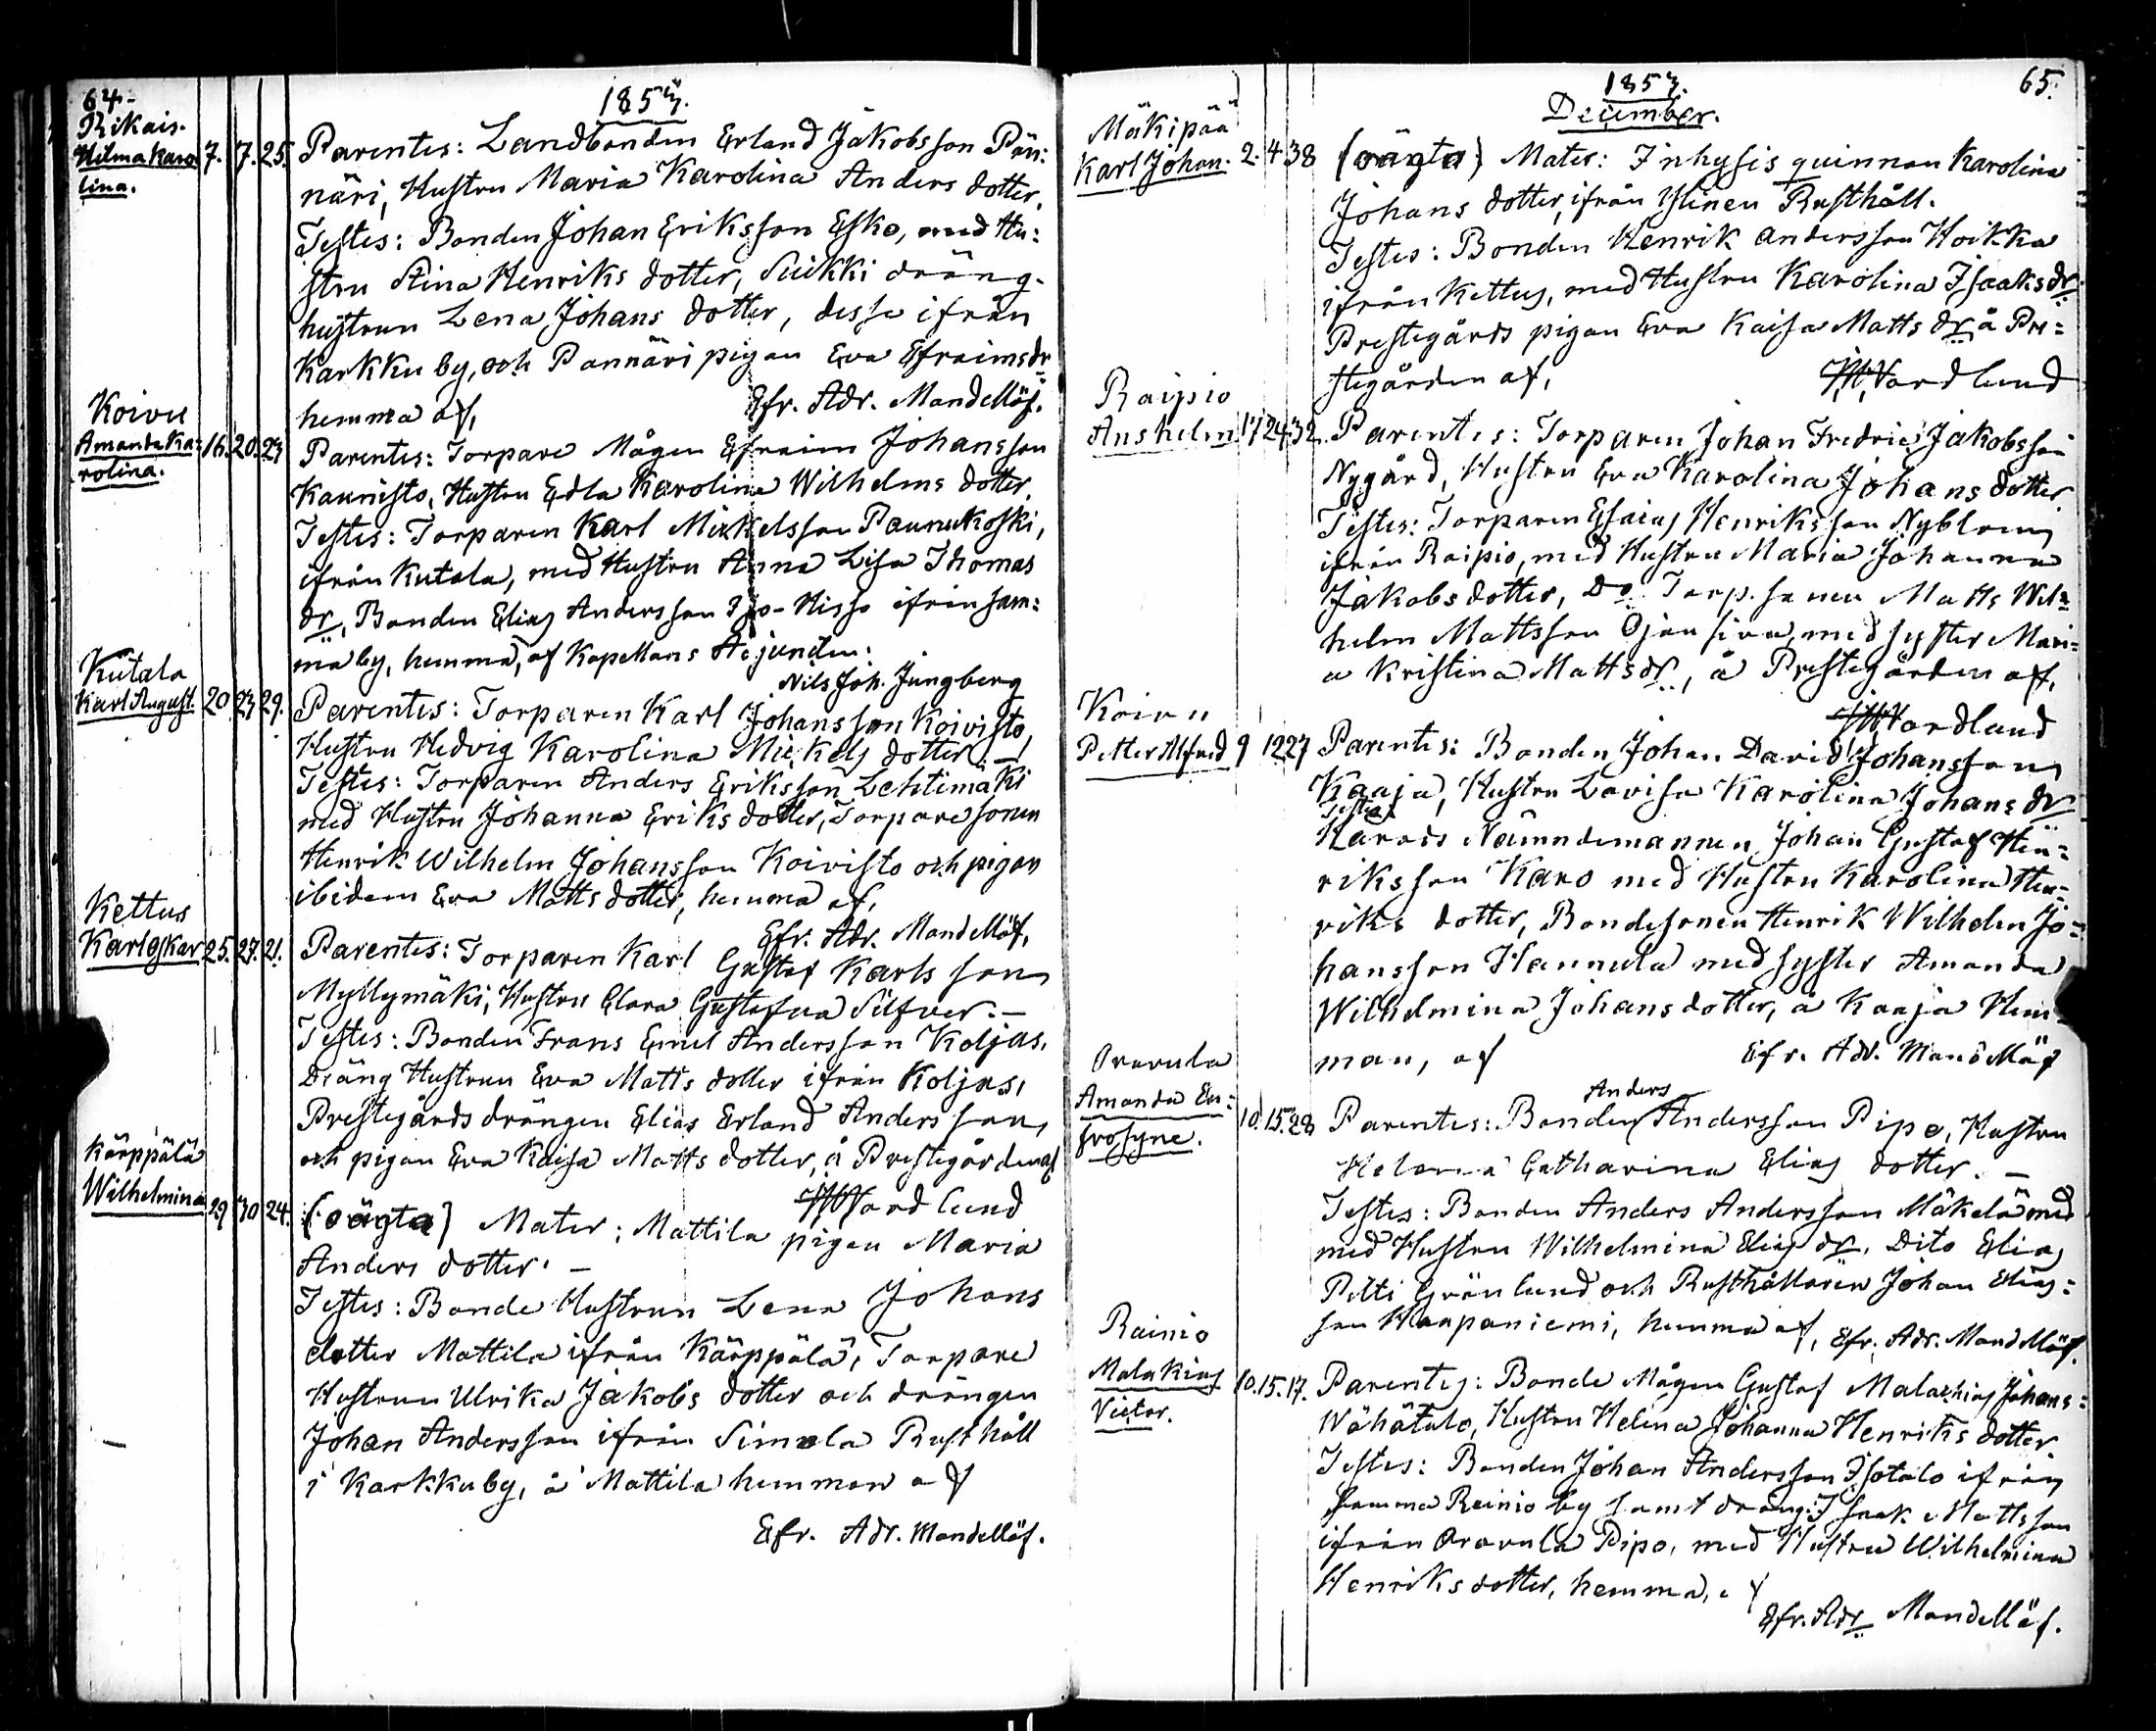 64.
1857.
Rikais.
Hilma Karo 7. 7. 25. Parentes: Landbonden Erland Jakobsson Pän:
lina. näri, Hustru Maria Karolina Anders dotter.
Testes: Bonden Johan Eriksson Esko, med Hu:
stru Stina Henriks dotter, Suikki dräng-
hustrun Lena Johans dotter, desse ifrån
Karkku by, och Pannäri pigan Eva Efraimsdr
hemma af, Efr. Adr. Mandellöf.
Koivu
Amanda Ka: 16. 20. 23 Parentes: Torpare Mågen Efraim Johansson
rolina. Kaunisto, Hustru Edla Karolina Wilhelms dotter.
Testes: Torparen Karl Mickelsson Paunukoski,
ifrån Kutala, med Hustru Anna Lisa Thomas
dr, Bonden Elias Andersson Iso-Hisso ifrån sam:
ma by, hemma, af Kapellans Adjuncten:
Nils Joh. Jungberg
Kutala
Karl August. 20 23 29. Parentes: Torparen Karl Johansson Koivisto,
Hustru Hedvig Karolina Mickels dotter. —
Testes: Torparen Anders Eriksson Lehtimäki
med Hustru Johanna Eriks dotter, Torpare sonen
Henrik Wilhelm Johansson Koivisto och pigan
ibidem Eva Matts dotter, hemma af,
Efr. Adr. Mandellöf.
Kettus
Karl Oskar 25. 27. 21. Parentes: Torparen Karl Gustaf Karlsson
Myllymäki, Hustru Clara Gustafva Silfver. —
Testes: Bonden Frans Emil Andersson Koljas,
Dräng Hustrun Eva Matts dotter ifrån Koljas,
Prestegårds drängen Elias Erland Andersson,
och pigan Eva Kaisa Matts dotter, å Prestegården af
J. W. Nordlund
Kärppälä
Wilhelmina 29 30 24. (oägta) Mater: Mattila pigan Maria
Anders dotter. —
Testes: Bonde Hustrun Lena Johans
dotter Mattila ifrån Kärppälä, Torpare
Hustrun Ulrika Jakobs dotter och drängen
Johan Andersson ifrån Simola Rusthåll
i Karkku by, å Mattila hemman af
Efr. Adr. Mandellöf.
65.
1857.
December.
Mäkipää
Karl Johan. 2. 4. 38 (oägta) Mater: Inhysis quinnan Karolina
Johans dotter, ifrån Ylinen Rusthåll.
Testes: Bonden Henrik Andersson Hoikka
ifrån Kettus, med Hustru Karolina Isaksdr.
Prestegårds pigan Eva Kaisa Matts dr å Pre:
stegården af, J. W. Nordlund
Raipio
Anshelm. 17 24 32. Parentes: Torparen Johan Fredric Jakobsson
Nygård, Hustru Eva Karolina Johans dotter
Testes: Torparen Esaias Henriksson Nyblom,
ifrån Raipio, med Hustru Maria Johanna
Jakobs dotter, Do Torp. sonen Matts Wil=
helm Mattsson Ojansivu, med syster Mari=
a Kristina Matts dr, å Prestegården af,
J. W. Nordlund
Koivu
Petter Alfred 9 12 27 Parentes: Bonden Johan David Johansson
Kaaja, Hustru Lovisa Karolina Johans dr
Testes
Härads Nämndemannen Johan Gustaf Hen=
riksson Karo med Hustru Karolina Hen=
riks dotter, Bondesonen Henrik Wilhelm Jo=
hansson Hannula med syster Amanda
Wilhelmina Johans dotter, å Kaaja Hem=
man, af Efr. Adr. Mandellöf
Oravula
Anders
Amanda Eu: 10. 15. 28 Parentes: Bonden Andersson Pipo, Hustru
frosyne. Helena Catharina Elias dotter. —
Testes: Bonden Anders Andersson Mäkelä med
med Hustru Wilhelmina Elias dr, Dito Elias
Piltti Grönlund och Rusthållaren Johan Elias=
son Haapaniemi, hemma af, Efr. Adr. Mandellöf.
Rainio
Malakias 10. 15. 17. Parentes: Bonde Mågen Gustaf Malachias Johans:
Victor. Wähätalo, Hustru Helena Johanna Henriks dotter
Testes: Bonden Johan Andersson Isotalo ifrån
samma Reinio by samt dräng: Isaak Mattsson
ifrån Oravula Pipo, med Hustru Wilhelmina
Henriks dotter, hemma, af
Efr. Adr Mandellöf.